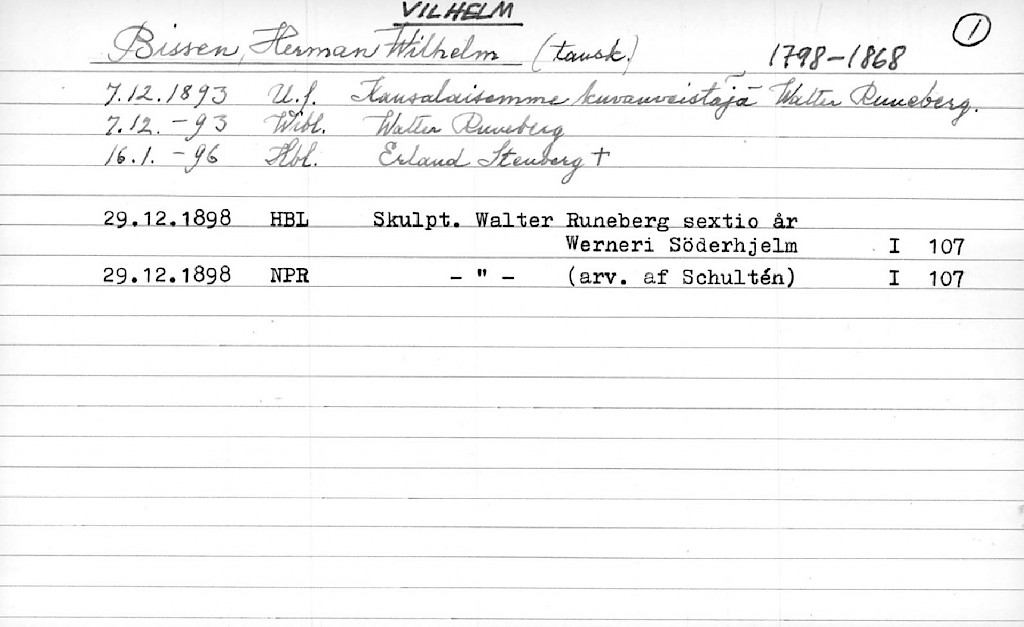 VILHELM
Bissen, Herman Wilhelm (tansk.) 1798-1868 1
7.12.1893 U.S. Kansalaisemme kuvanveistäjä Walter Runeberg.
7.12.-93 Wibl. Walter Runeberg
16.1.-96 Hbl. Erland Stenberg †
29.12.1898 HBL Skulpt. Walter Runeberg sextio år
Werneri Söderhjelm I 107
29.12.1898 NPR - " - (arv. af Schultén) I 107